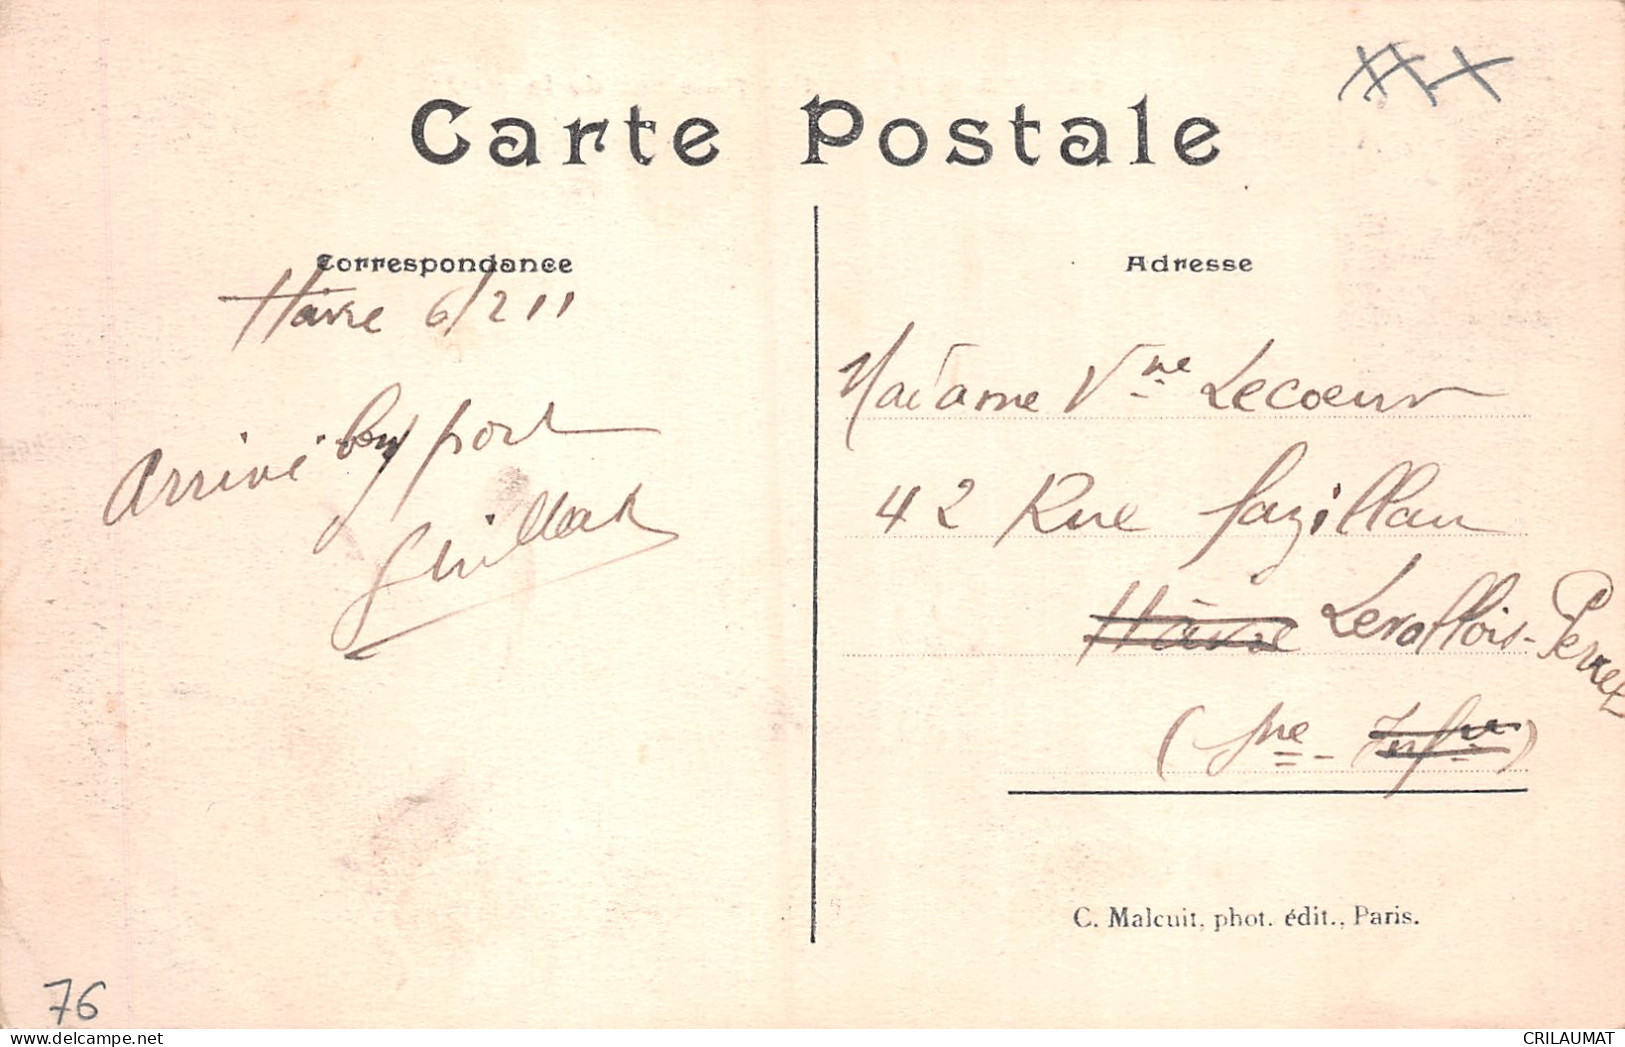 Carte Postale
Correspondance
Havre 6/2 11
Arrivé bon port
Adresse
Madame Vve Lecoeur
42 Rue Fazillau
Havre Levallois-Perret
(Sne - Infre)
C. Malcuit, phot. édit., Paris.
76
CRILAUMAT